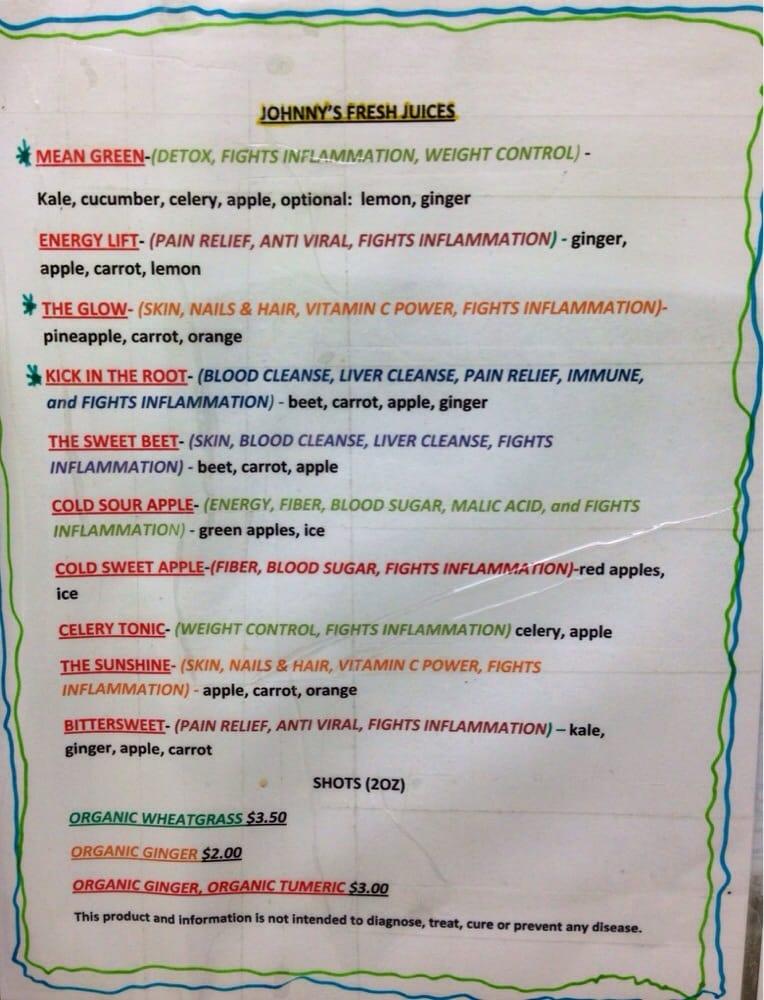 JOHNNY'S FRESH JUICES
MEAN GREEN-(DETOX, FIGHTS INFLAMMATION, WEIGHT CONTROL) -
Kale, cucumber, celery, apple, optional: lemon, ginger
ENERGY LIFT- (PAIN RELIEF, ANTI VIRAL, FIGHTS INFLAMMATION) - ginger,
apple, carrot, lemon
THE GLOW- (SKIN, NAILS & HAIR, VITAMIN C POWER, FIGHTS INFLAMMATION)-
pineapple, carrot, orange
KICK IN THE ROOT- (BLOOD CLEANSE, LIVER CLEANSE, PAIN RELIEF, IMMUNE,
and FIGHTS INFLAMMATION) - beet, carrot, apple, ginger
THE SWEET BEET- (SKIN, BLOOD CLEANSE, LIVER CLEANSE, FIGHTS
INFLAMMATION) - beet, carrot, apple
COLD SOUR APPLE- (ENERGY, FIBER, BLOOD SUGAR, MALIC ACID, and FIGHTS
INFLAMMATION) - green apples, ice
COLD SWEET APPLE-(FIBER, BLOOD SUGAR, FIGHTS INFLAMMATION)-red apples,
ice
CELERY TONIC- (WEIGHT CONTROL, FIGHTS INFLAMMATION) celery, apple
THE SUNSHINE- (SKIN, NAILS & HAIR, VITAMIN C POWER, FIGHTS
INFLAMMATION) - apple, carrot, orange
BITTERSWEET- (PAIN RELIEF, ANTI VIRAL, FIGHTS INFLAMMATION) – kale,
ginger, apple, carrot
SHOTS (2OZ)
ORGANIC WHEATGRASS $3.50
ORGANIC GINGER $2.00
ORGANIC GINGER, ORGANIC TUMERIC $3.00
This product and information is not intended to diagnose, treat, cure or prevent any disease.